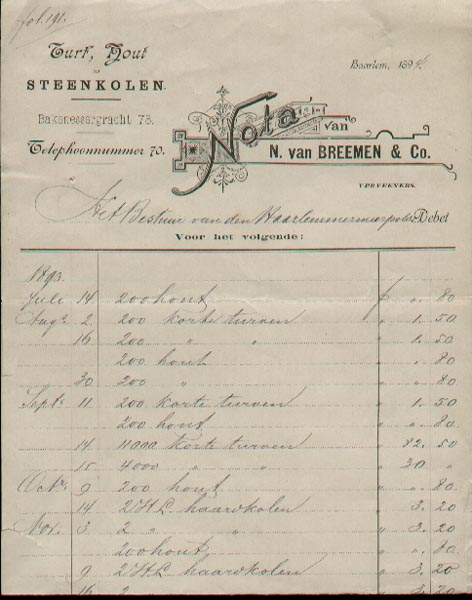 fol. 191.
Turf, Hout
en
STEENKOLEN.
Bakenessergracht 78.
Telephoonnummer 70.
Haarlem, 1894.
Nota van
N. van BREEMEN & Co.
VERVEENERS.
Het Bestuur van den Haarlemmermeerpolder Debet
Voor het volgende:
1893
Juli 14 200 hout f „ 80
Augs 2 200 korte turven „ 1. 50
16 200 „ „ „ 1. 50
200 hout „ „ 80
30 200 „ „ „ 80
Sept. 11 200 korte turven „ 1. 50
200 hout „ „ 80
14 11000 korte turven „ 82. 50
15 4000 „ „ „ 30 „
Octr. 9 200 hout „ „ 80
14 2 H.L. haardkolen „ 3. 20
Nov. 3 2 „ „ „ 3. 20
200 hout „ „ 80
9 2 H.L. haardkolen „ 3. 20
16 2